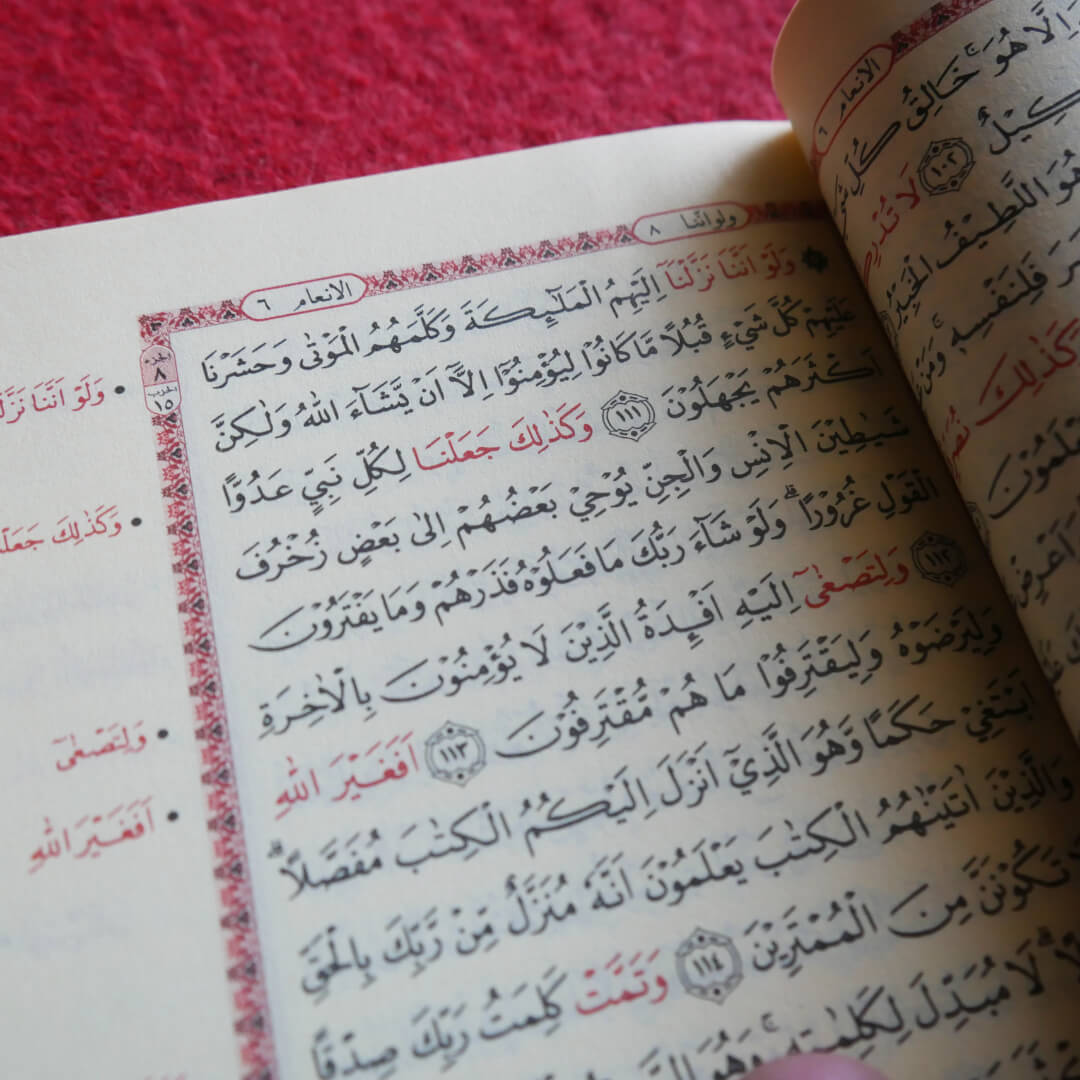 ولواننا ٨
الانعام ٦
الجزء
٨
الحزب
١٥
وَلَوْ اَنَّنَا نَزَّلْنَآ اِلَيْهِمُ الْمَلٰٓئِكَةَ وَكَلَّمَهُمُ الْمَوْتٰى وَحَشَرْنَا
عَلَيْهِمْ كُلَّ شَيْءٍ قُبُلًا مَّا كَانُوْا لِيُؤْمِنُوْٓا اِلَّآ اَنْ يَّشَآءَ اللّٰهُ وَلٰكِنَّ
اَكْثَرَهُمْ يَجْهَلُوْنَ ١١١ وَكَذٰلِكَ جَعَلْنَا لِكُلِّ نَبِيٍّ عَدُوًّا
شَيٰطِيْنَ الْاِنْسِ وَالْجِنِّ يُوْحِيْ بَعْضُهُمْ اِلٰى بَعْضٍ زُخْرُفَ
الْقَوْلِ غُرُوْرًاۗ وَلَوْ شَآءَ رَبُّكَ مَا فَعَلُوْهُ فَذَرْهُمْ وَمَا يَفْتَرُوْنَ
١١٢ وَلِتَصْغٰٓى اِلَيْهِ اَفْـِٕدَةُ الَّذِيْنَ لَا يُؤْمِنُوْنَ بِالْاٰخِرَةِ
وَلِيَرْضَوْهُ وَلِيَقْتَرِفُوْا مَا هُمْ مُّقْتَرِفُوْنَ ١١٣ اَفَغَيْرَ اللّٰهِ
اَبْتَغِيْ حَكَمًا وَّهُوَ الَّذِيْٓ اَنْزَلَ اِلَيْكُمُ الْكِتٰبَ مُفَصَّلًاۗ
وَالَّذِيْنَ اٰتَيْنٰهُمُ الْكِتٰبَ يَعْلَمُوْنَ اَنَّهٗ مُنَزَّلٌ مِّنْ رَّبِّكَ بِالْحَقِّ
تَكُوْنَنَّ مِنَ الْمُمْتَرِيْنَ ١١٤ وَتَمَّتْ كَلِمَتُ رَبِّكَ صِدْقًا
لَا مُبَدِّلَ لِكَلِمٰتِهٖۚ وَهُوَ
• وَلَوْ اَنَّنَا
• وَكَذٰلِكَ
• وَلِتَصْغٰٓى
• اَفَغَيْرَ اللّٰهِ
الانعام ٦
اِلَّا هُوَۚ خَالِقُ كُلِّ
١٠٢
هُوَ اللَّطِيْفُ الْخَبِيْرُ
فَلِنَفْسِهٖۚ وَمَنْ
وَكَذٰلِكَ